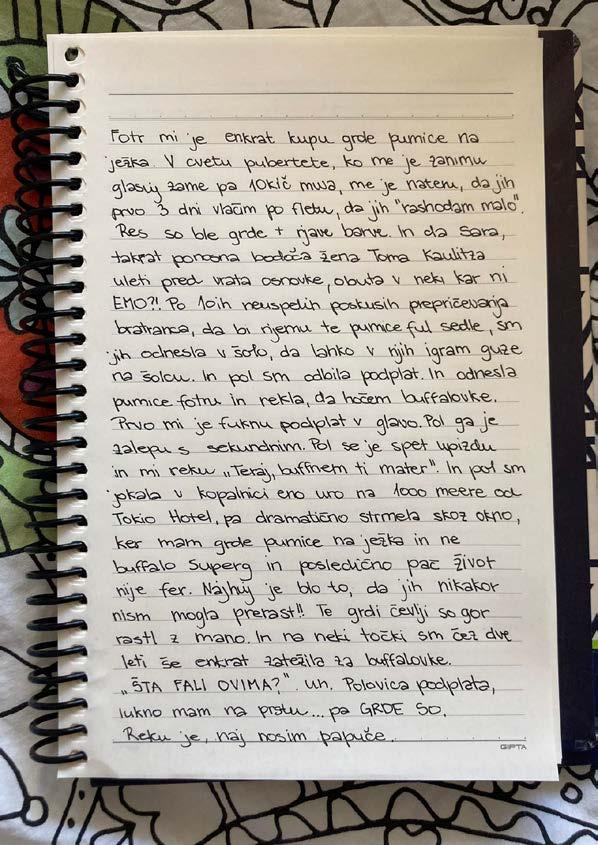 Fotr mi je enkrat kupu grde pumice na
ježka. V cvetu pubertete, ko me je zanimu
glasuj zame pa 10kič musa, me je nateru, da jih
prvo 3 dni vlačim po fletu, da jih "rashodam malo".
Res so ble grde + rjave barve. In da Sara,
takrat ponosna bodoča žena Toma Kaulitza
uleti pred vrata osnovke, obuta v neki kar ni
EMO?! Po 10ih neuspelih poskusih prepričevanja
bratranca, da bi njemu te pumice ful sedle, sm
jih odnesla v šolo, da lahko v njih igram guze
na šolcu. In pol sm odbila podplat. In odnesla
pumice fotru in rekla, da hočem buffalovke.
Prvo mi je fuknu podplat v glavo. Pol ga je
zalepu s sekundnim. Pol se je spet upizdu
in mi reku „Teraj, buffnem ti mater". In pol sm
jokala v kopalnici eno uro na 1000 meere od
Tokio Hotel, pa dramatično strmela skoz okno,
ker mam grde pumice na ježka in ne
buffalo Superg in posledično pač život
nije fer. Najhuj je blo to, da jih nikakor
nism mogla prerast!! Te grdi čevlji so gor
rastl z mano. In na neki točki sm čez dve
leti še enkrat zatežila za buffalovke.
„ŠTA FALI OVIMA?". Uh. Polovica podplata,
lukno mam na prstu... pa GRDE SO.
Reku je, naj nosim papuče.
GIPTA